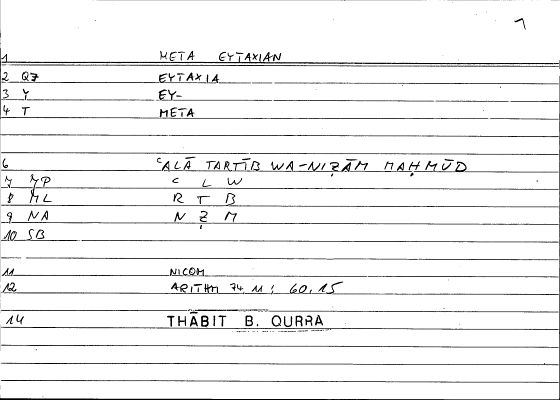 1 META EYTAXIAN
2 QZ EYTAXIA
3 Y EY-
4 T META
6 ʿALĀ TARTĪB WA-NIẒĀM MAḤMŪD
7 YP ʿ L W
8 ML R T B
9 NA N Ẓ M
10 SB
11 NICOM
12 ARITHM 74, 11; 60,15
14 THĀBIT B. QURRA